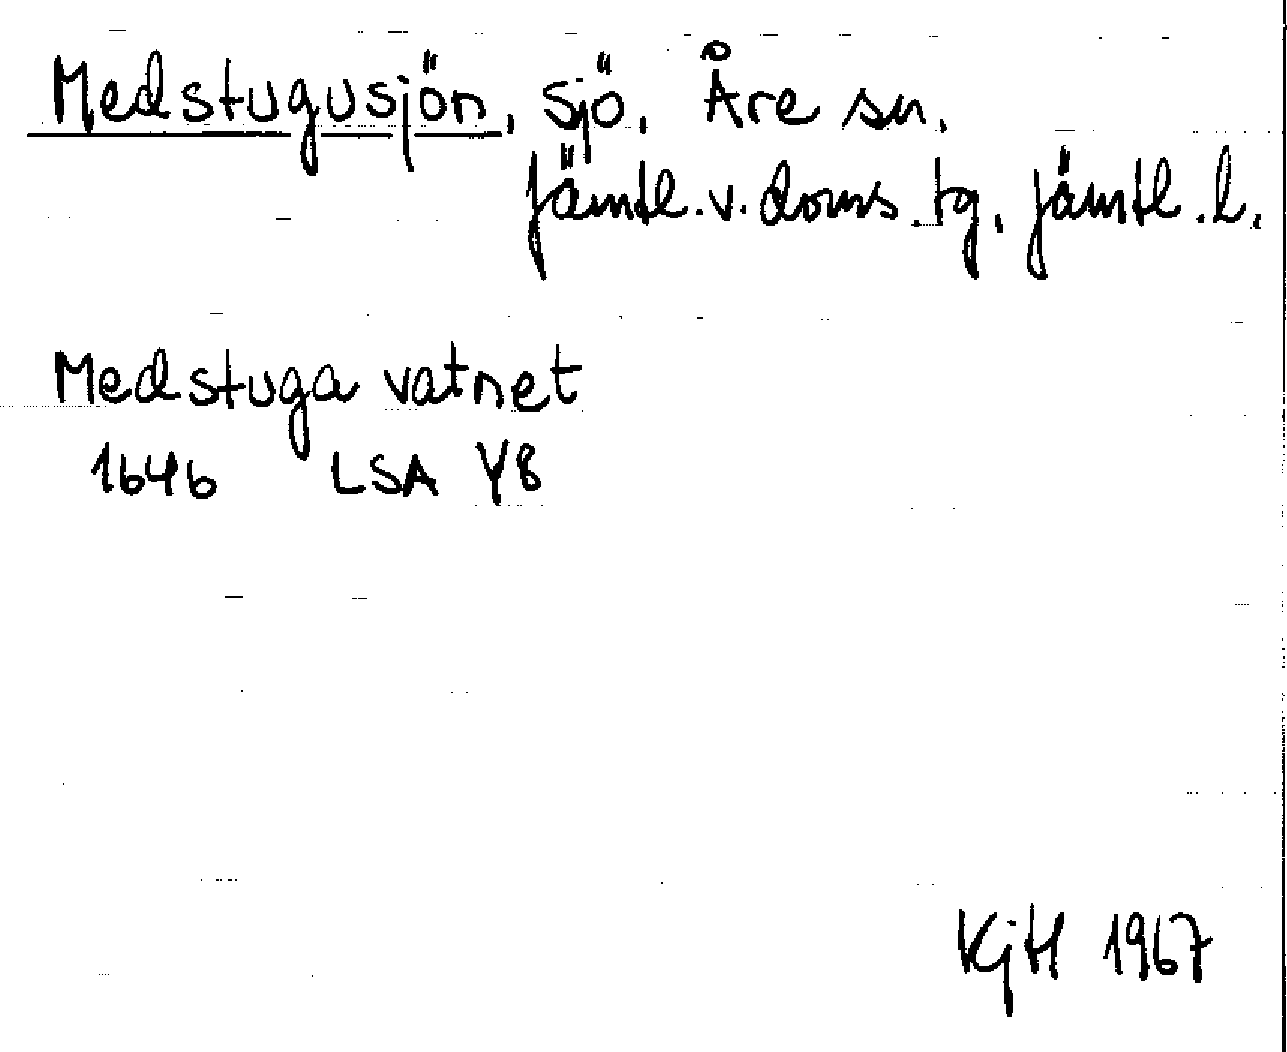 Medstugusjön, sjö, Åre sn,
Jämtl.v.doms.tg, Jämtl.l.
Medstuga vatnet
1646 LSA Y8
KjH 1967